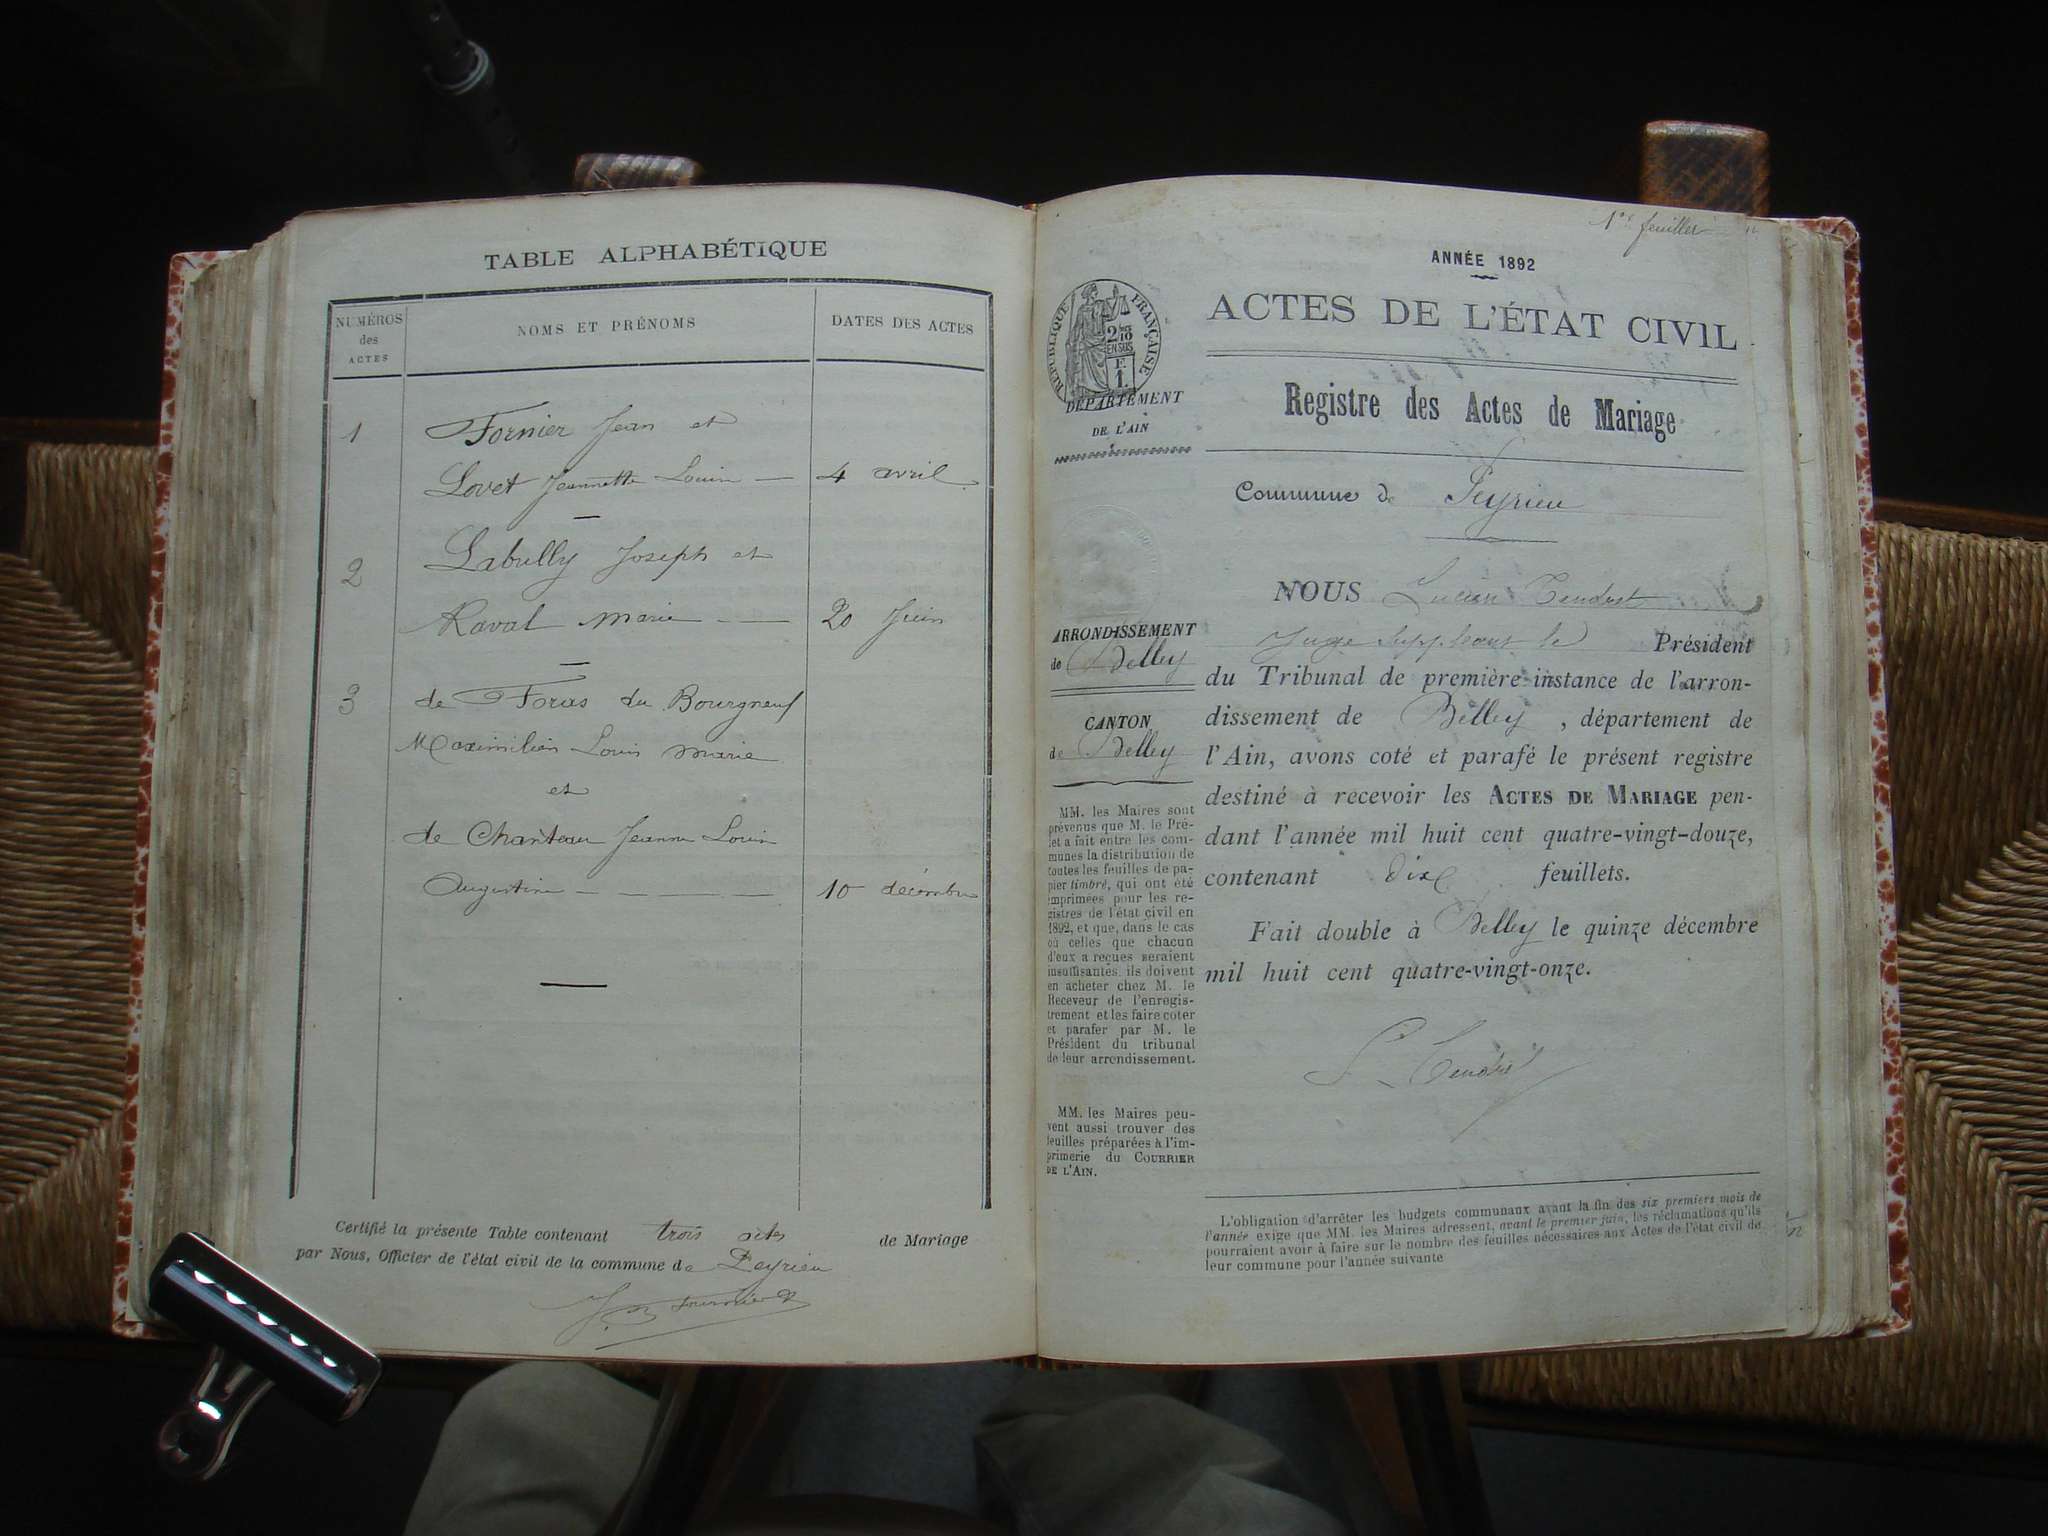 TABLE ALPHABÉTIQUE
NUMÉROS des ACTES
NOMS ET PRÉNOMS
DATES DES ACTES
1 Fornier Jean et
Lovet Jeannette Louise — 4 avril
2 Labully Joseph et
Raval Marie — 20 Juin
3 de Foras du Bourgneuf
Maximilien Louis Marie
et
de Chanteau Jeanne Louise
Augustine — 10 décembre
Certifié la présente Table contenant trois actes de Mariage
par Nous, Officier de l'état civil de la commune de Peyrieu
1er feuillet
ANNÉE 1892
ACTES DE L'ÉTAT CIVIL
RÉPUBLIQUE FRANÇAISE
2/10 EN SUS
F. 1.
DÉPARTEMENT
DE L'AIN
Registre des Actes de Mariage
Commune de Peyrieu
ARRONDISSEMENT
de Belley
CANTON
de Belley
MM. les Maires sont
prévenus que M. le Pré-
fet a fait entre les com-
munes la distribution de
toutes les feuilles de pa-
pier timbré, qui ont été
imprimées pour les re-
gistres de l'état civil en
1892, et que, dans le cas
où celles que chacun
d'eux a reçues seraient
insuffisantes, ils doivent
en acheter chez M. le
Receveur de l'enregis-
trement et les faire coter
et parafer par M. le
Président du tribunal
de leur arrondissement.
MM. les Maires peu-
vent aussi trouver des
feuilles préparées à l'im-
primerie du COURRIER
DE L'AIN.
NOUS Lucien Tendret
Juge suppléant le Président
du Tribunal de première instance de l'arron-
dissement de Belley, département de
l'Ain, avons coté et parafé le présent registre
destiné à recevoir les ACTES DE MARIAGE pen-
dant l'année mil huit cent quatre-vingt-douze,
contenant dix feuillets.
Fait double à Belley le quinze décembre
mil huit cent quatre-vingt-onze.
L. Tendret
L'obligation d'arrêter les budgets communaux avant la fin des six premiers mois de
l'année exige que MM. les Maires adressent, avant le premier juin, les réclamations qu'ils
pourraient avoir à faire sur le nombre des feuilles nécessaires aux Actes de l'état civil de
leur commune pour l'année suivante